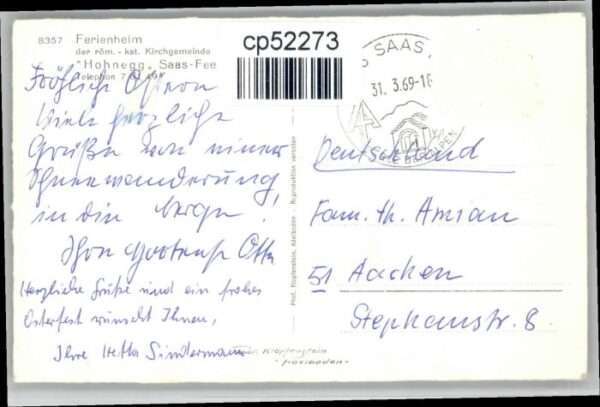 8357 Ferienheim
der röm. - kat. Kirchgemeinde
"Hohnegg" Saas-Fee
Telephon 7
cp52273
SAAS
31. 3.69-18
ALPEN
Fröhliche Ostern
Viele herzliche
Grüße von einer
Schneewanderung,
in die Berge!
Ihre Otto
Herzliche Grüße und ein frohes
Osterfest wünscht Ihnen,
Ihre Hetta Sindermann
Deutschland
Fam. th. Amian
51 Aachen
Stephanstr. 8.
Phot. Klopfenstein, Adelboden - Reproduktion verboten
Klopfenstein
- Adelboden -